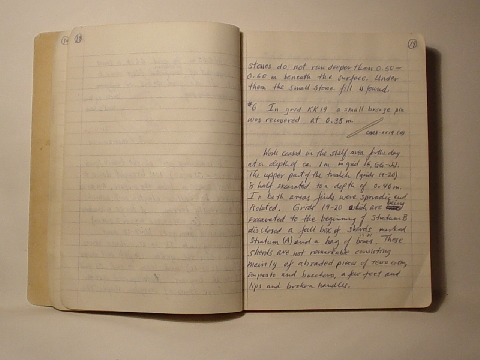 19
stones do not run deeper than 0.50 –
0.60 m beneath the surface. Under
them the small stone fill is found.
#6 In grid KK19 a small bronze pin
was recovered at 0.35 m
Work ceased in the shelf area for the day
at a depth of ca. 1 m in grid
The upper part of the trench (grids 19-20)
is half excavated to a depth of 2.40 m.
In both areas finds were sporadic and
isolated. Grids 19-20 which are being
excavated to the beginning of Stratum B
disclosed a full box of sherds marked
Stratum (A) and a bag of bones. These
sherds are not remarkable consisting
mainly of abraded pieces of terra cotta,
impasto and bucchero, a few feet and
lips and broken handles.